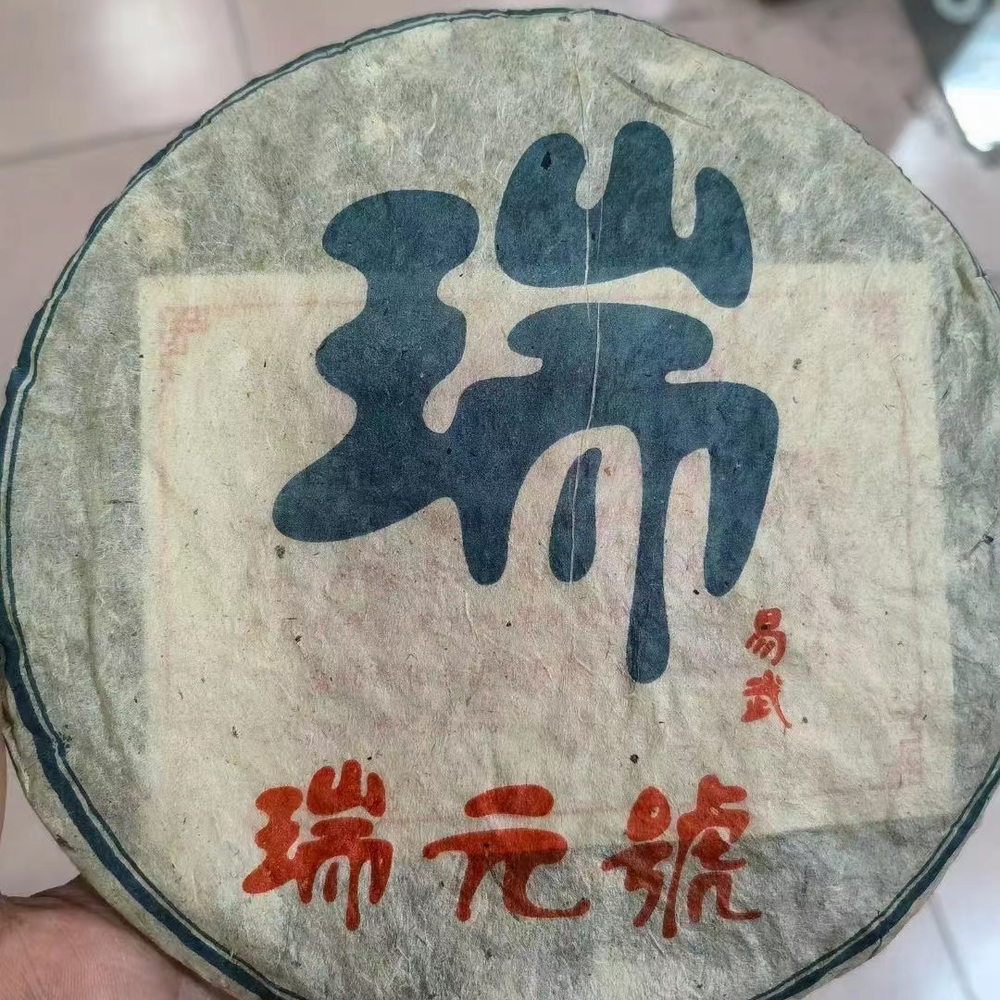 瑞
易武
瑞元號